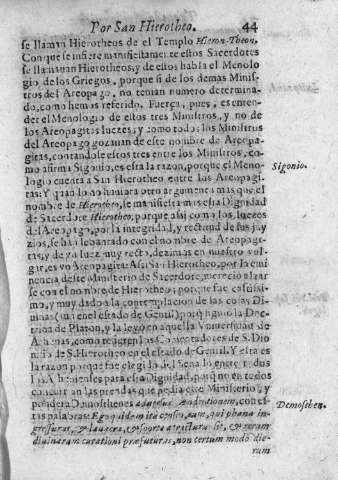 Por San Hierotheo. 44
se llamauan Hierotheos de el Templo Hieron-Theon.
Con que se infiere manifiestamente estos Sacerdotes
se llamauan Hierotheos, y de estos habla el Menolo
gio de los Griegos, porque si de los demas Minis-
tros del Areopago, no tenian numero determina-
do, como hemos referido. Fuerça, pues, es enten-
der el Menologio de estos tres Ministros, y no de
los Areopagitas Iuezes; y como todos los Ministros
del Areopago gozauan de este nombre de Areopa-
gitas, contandose estos tres entre los Ministros, co-
mo afirma Sigonio, es esta la razon, porque el Meno-
logio cuenta à San Hierotheo entre los Areopagi-
tas: Y quando no huuiera otro argumento mas que el
nombre de Hierotheo, se manifiesta
de Sacerdote Hierotheo, porque assi como los Iuezes
del Areopago, por la integridad, y rectitud de sus juy-
zios, se han leuantado con el nombre de Areopagi-
tas, y de vn Iuez muy recto, dezimos en nuestro vul-
gar, es vn Areopagita: Assi San Hierotheo, por la emi
nencia de este Ministerio de Sacerdote, mereciò alçar
se con el nombre de Hierotheo; porque fue
mo, y muy dado à la contemplacion de las cosas Di-
uinas (aun en el estado de Gentil) porque siguiò la Doc-
trina de Platon, y la leyò en aquella Vniuersidad de
Athenas, como
nisio de S. Hierotheo en el estado de Gentil. Y esta es
la razon porque fue elegido del Senado entre todos
los Athenienses para esta Dignidad, porque no en todos
concurrian las prendas que pedia este Ministerio, y
pondera Demosthenes aduersus Androtionem, con es-
tas palabras: Ego quidem ita censeo, eum, qui phana in-
gressurus, & lauacra, & sit, & rerum
diuinarum curationi præfuturus, non certum modò die-
rum
Sigonio.
Demosthen.